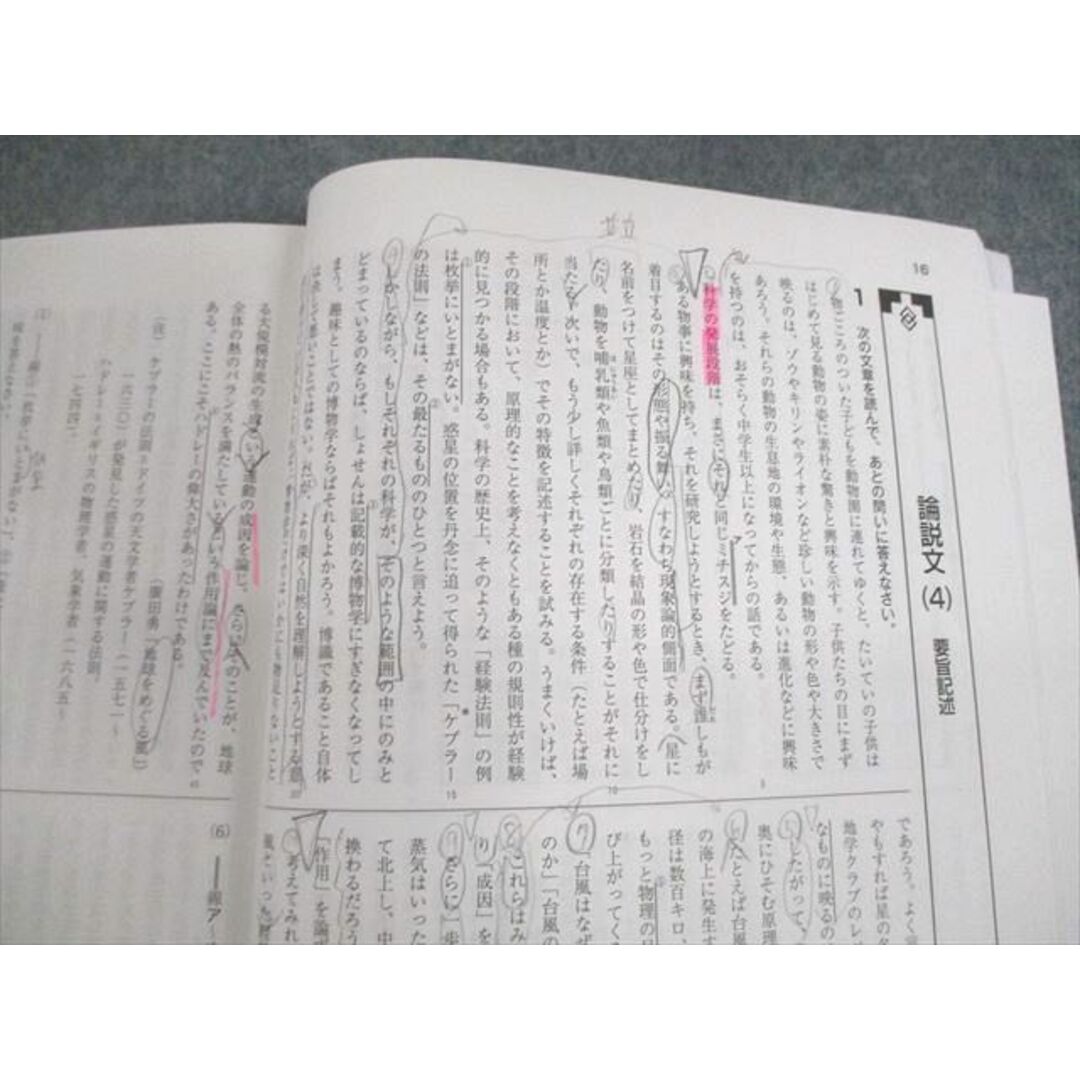 16
論説文（4） 要旨記述
1 次の文章を読んで、あとの問いに答えなさい。
物ごころのついた子どもを動物園に連れてゆくと、たいていの子供は
はじめて見る動物の姿に素朴な驚きと興味を示す。子供たちの目にまず
映るのは、ゾウやキリンやライオンなど珍しい動物の形や色や大きさで
あろう。それらの動物の生息地の環境や生態、あるいは進化などに興味
を持つのは、おそらく中学生以上になってからの話である。
科学の発展段階は、まさにそれと同じミチスジをたどる。
ア
ある物事に興味を持ち、それを研究しようとするとき、まず誰しもが
着目するのはその形態や振る舞い、すなわち現象論的側面である。星に
名前をつけて星座としてまとめたり、岩石を結晶の形や色で仕分けをし
たり、動物を哺乳類や魚類や鳥類ごとに分類したりすることがそれに
当たる。次いで、もう少し詳しくそれぞれの存在する条件（たとえば場
所とか温度とか）でその特徴を記述することを試みる。うまくいけば、
その段階において、原理的なことを考えなくともある種の規則性が経験
的に見つかる場合もある。科学の歴史上、そのような「経験法則」の例
は枚挙にいとまがない。惑星の位置を丹念に追って得られた「ケプラー
の法則」などは、その最たるもののひとつと言えよう。
しかしながら、もしそれぞれの科学が、そのような範囲の中にのみと
どまっているのならば、しょせんは記載的な博物学にすぎなくなってし
まう。趣味としての博物学ならばそれもよかろう。博識であること自体
は決して悪いことではない。だが、より深く自然を理解しようとする
5
10
15
であろう。よく
やもすれば星の
地学クラブのレ
なものに映るの
したがって、
奥にひそむ原理
たとえば台風
の海上に発生す
径は数百キロ、
もっと物理の
び上がってく
「台風はなぜ
のか」「台風の
これらはみ
り、「成因」を
さらに一歩
蒸気はいった
て北上し、中
換わるだろう
「作用」を論
考えてみれ
る大規模対流の
運動の成因を論じ、さらにそのことが、地球
全体の熱のバランスを満たしているという作用論にまで及んでいたので
ある。ここにこそハドレーの偉大さがあったわけである。
（廣田勇「地球をめぐる風」）
（注） ケプラーの法則＝ドイツの天文学者ケプラー（一五七一～
一六三〇）が発見した惑星の運動に関する法則。
ハドレー＝イギリスの物理学者、気象学者（一六八五～
一七四四）。
(6)
線ア